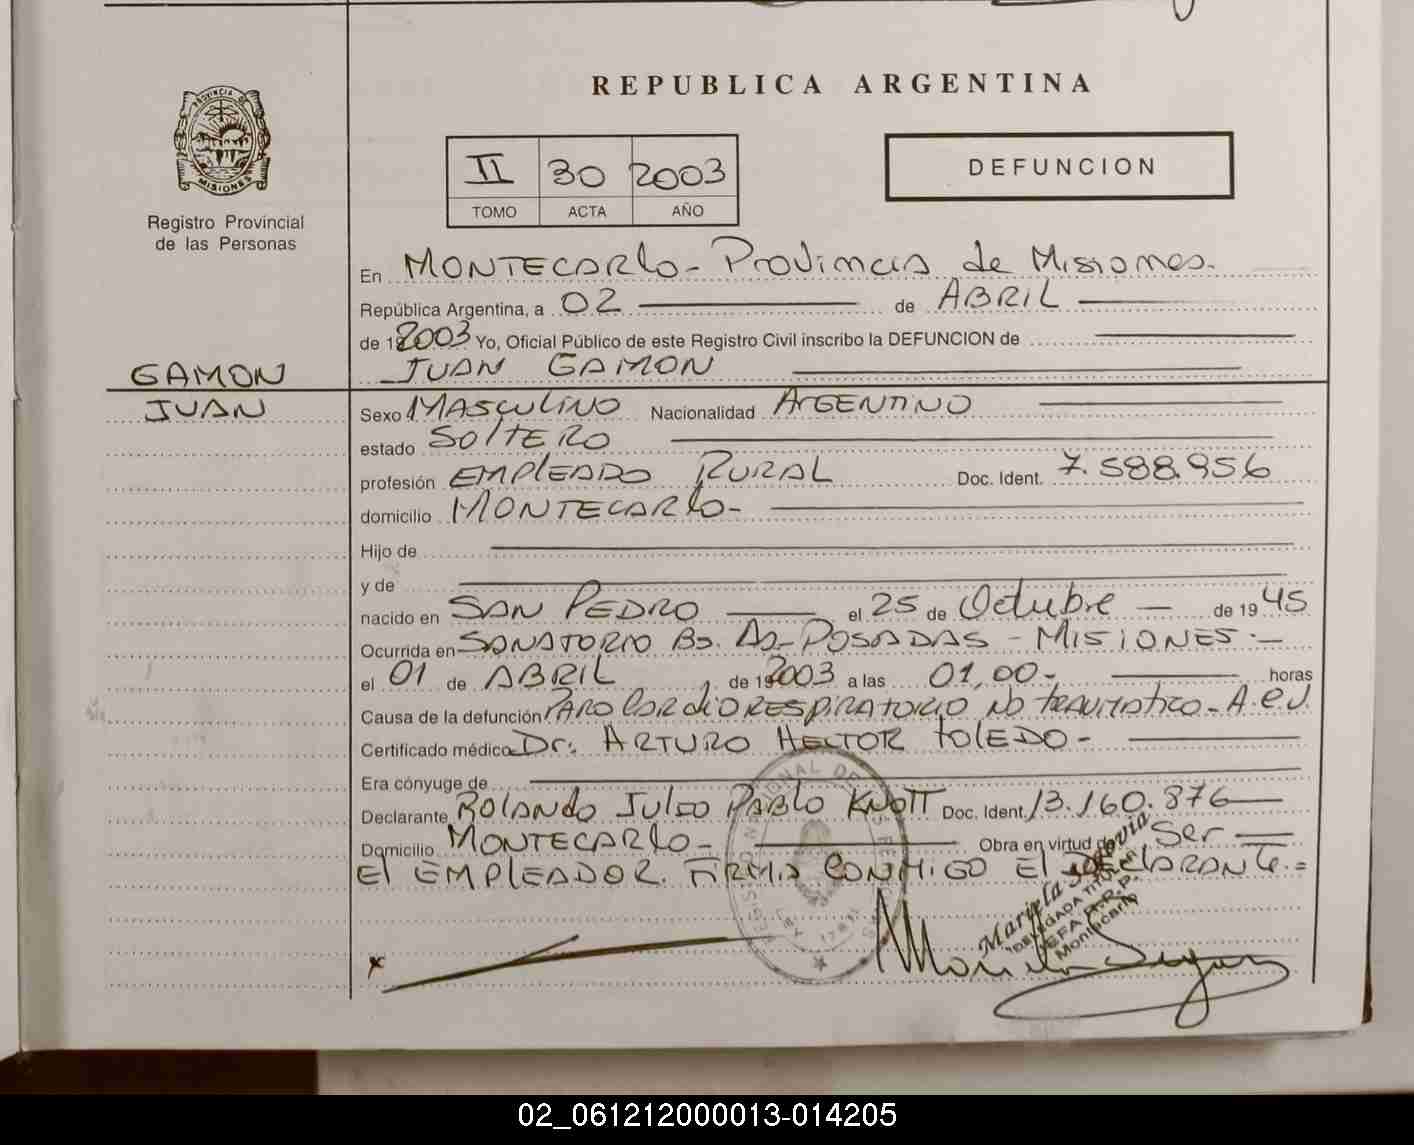 REPUBLICA ARGENTINA
PROVINCIA DE
MISIONES
Registro Provincial
de las Personas
II 30 2003
TOMO ACTA AÑO
DEFUNCION
En MONTECARLO - PROVINCIA de MISIONES.
República Argentina, a 02 de ABRIL
de 2003 Yo, Oficial Público de este Registro Civil inscribo la DEFUNCION de
JUAN GAMON
GAMON
JUAN
Sexo MASCULINO Nacionalidad ARGENTINO
estado SOLTERO
profesión EMPLEADO RURAL Doc. Ident. 7.588.956
domicilio MONTECARLO-
Hijo de
y de
nacido en SAN PEDRO el 25 de Octubre de 1945
Ocurrida en SANATORIO Bs. As - POSADAS - MISIONES.-
el 01 de ABRIL de 2003 a las 01,00- horas
Causa de la defunción PARO CARDIORESPIRATORIO NO TRAUMATICO - A.C.V.
Certificado médico Dr. ARTURO HECTOR TOLEDO-
Era cónyuge de
Declarante ROLANDO JULIO PABLO KNOTT Doc. Ident. 13.160.876
Domicilio MONTECARLO- Obra en virtud de Ser
El EMPLEADOR. FIRMA CONMIGO El DECLARANTE.=
Mariela
DELEGADA TITULAR
JEFA R.P.P.
Montecarlo
02_061212000013-014205